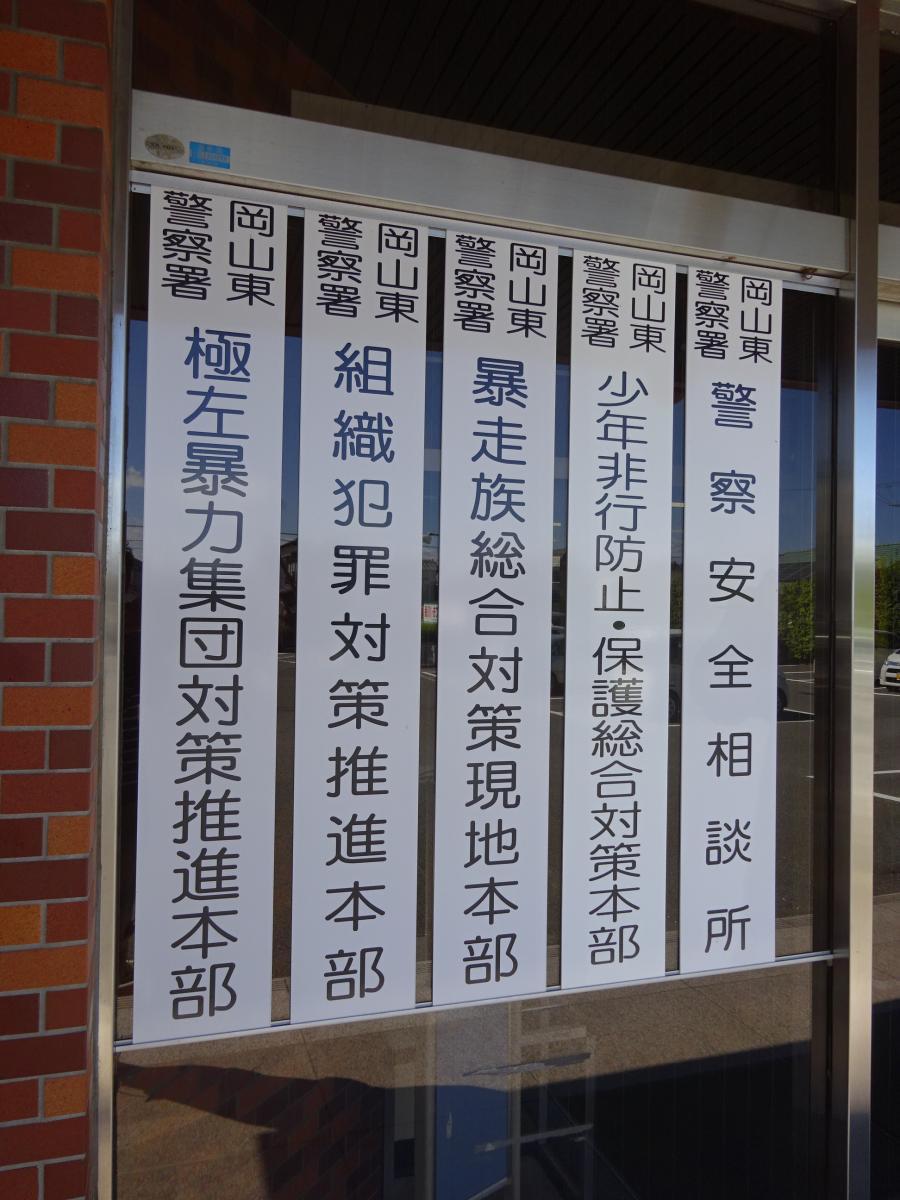 岡山東
警察署
警察安全相談所
岡山東
警察署
少年非行防止・保護総合対策本部
岡山東
警察署
暴走族総合対策現地本部
岡山東
警察署
組織犯罪対策推進本部
岡山東
警察署
極左暴力集団対策推進本部